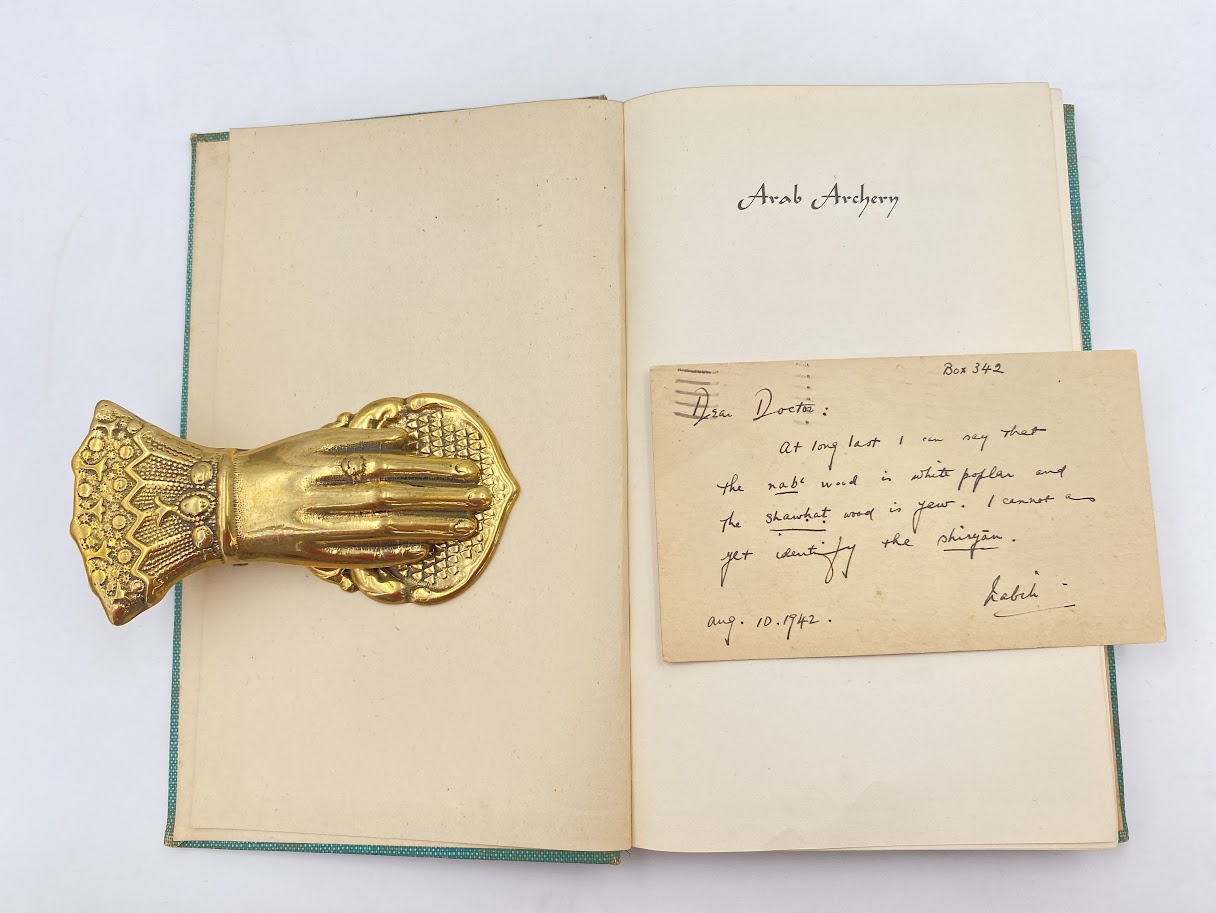 Arab Archery
Box 342
Dear Doctor:
At long last I can say that
the nabʿ wood is white poplar and
the shawhat wood is yew. I cannot as
yet identify the shiryān.
Nabih
Aug. 10. 1942.